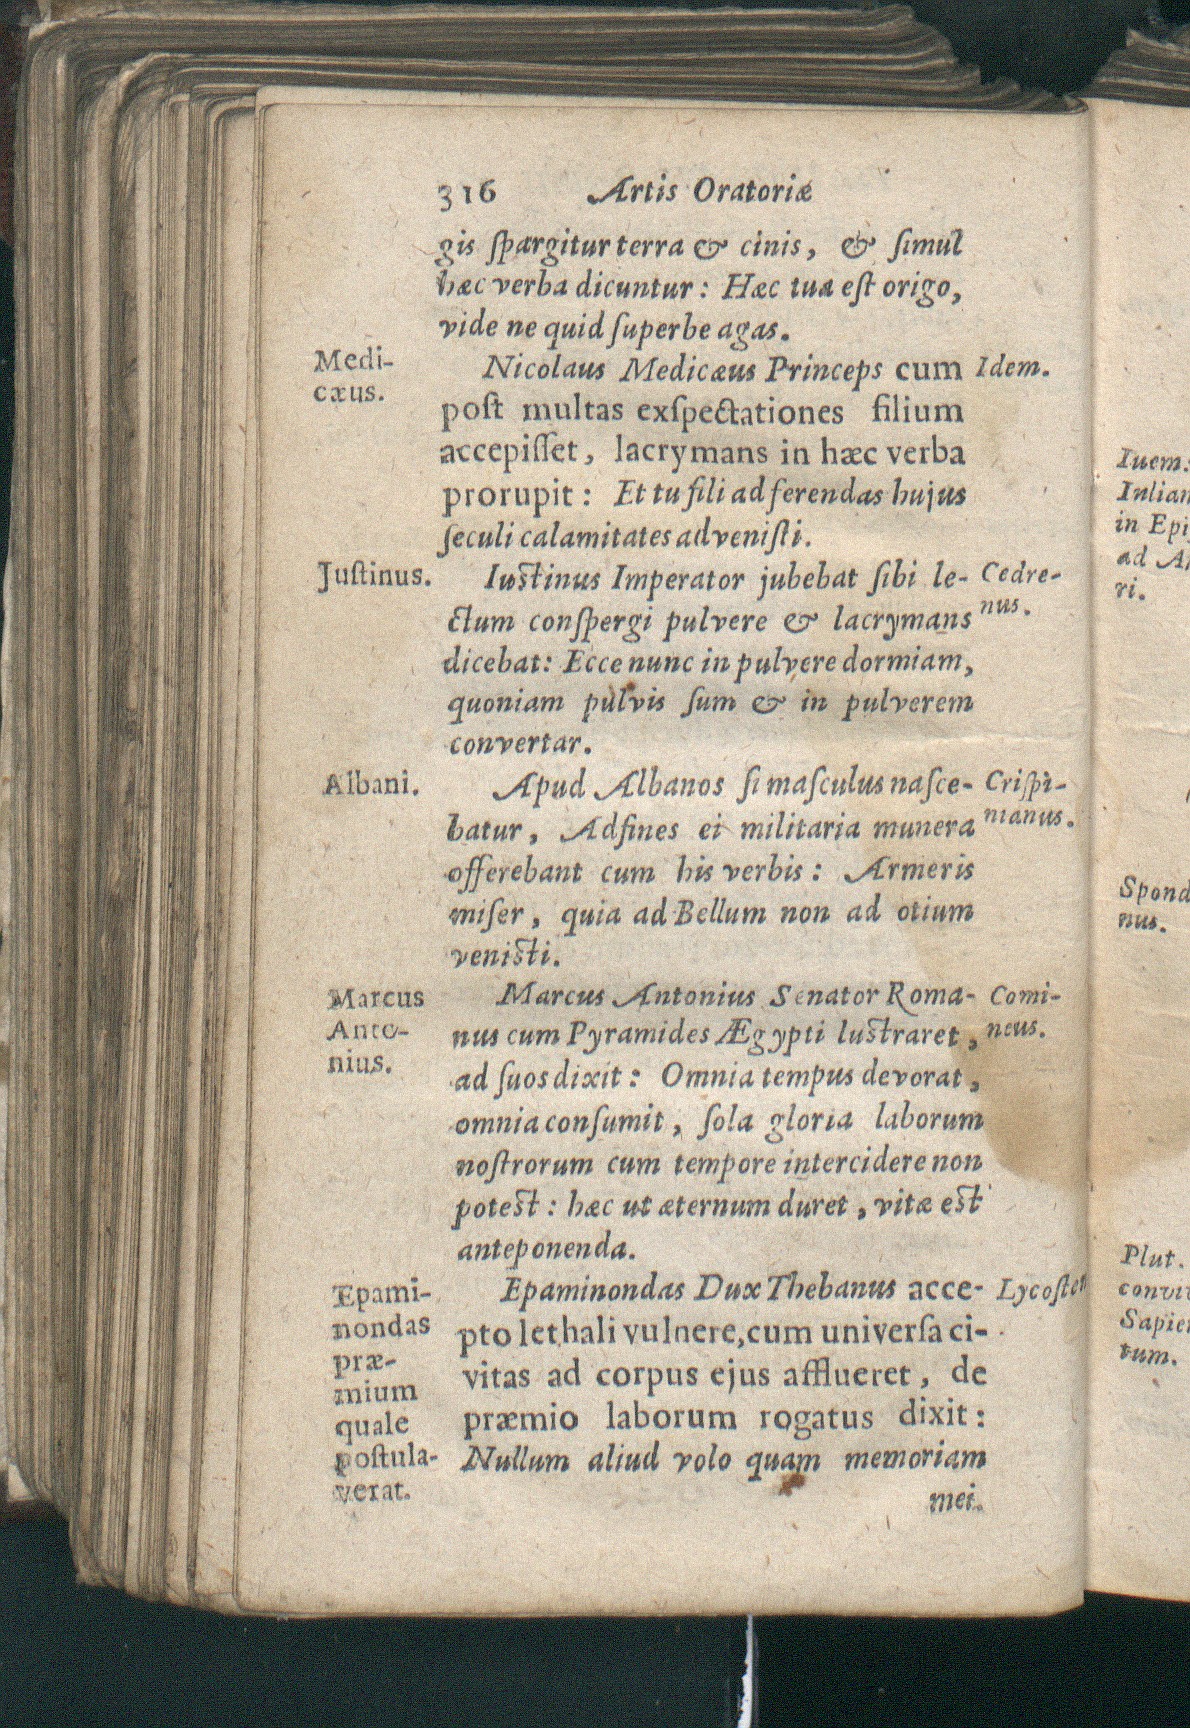 316 Artis Oratoriæ
gis ſpargitur terra & cinis, & ſimul
hæc verba dicuntur: Hæc tua eſt origo,
vide ne quid ſuperbe agas.
Medi-
cæus.
Nicolaus Medicæus Princeps cum
Idem.
poſt multas exſpectationes filium
accepiſſet, lacrymans in hæc verba
prorupit: Et tu fili ad ferendas hujus
ſeculi calamitates adveniſti.
Juſtinus.
Iuſtinus Imperator jubebat ſibi le-
Cedre-
nus.
ctum conſpergi pulvere & lacrymans
dicebat: Ecce nunc in pulvere dormiam,
quoniam pulvis ſum & in pulverem
convertar.
Albani.
Apud Albanos ſi maſculus naſce-
Criſpi-
nianus.
batur, Adfines ei militaria munera
offerebant cum his verbis: Armeris
miſer, quia ad Bellum non ad otium
veniſti.
Marcus
Anto-
nius.
Marcus Antonius Senator Roma-
Comi-
neus.
nus cum Pyramides Ægypti luſtraret,
ad ſuos dixit: Omnia tempus devorat,
omnia conſumit, ſola gloria laborum
noſtrorum cum tempore intercidere non
poteſt: hæc ut æternum duret, vitæ eſt
anteponenda.
Epami-
nondas
præ-
mium
quale
poſtula-
verat.
Epaminondas Dux Thebanus acce-
Lycoſten
pto lethali vulnere, cum univerſa ci-
vitas ad corpus ejus afflueret, de
præmio laborum rogatus dixit:
Nullum aliud volo quam memoriam
mei.
Iuem.
Iulian
in Epiſ
ad A
ri.
Spond
nus.
Plut.
convi
Sapie
tum.